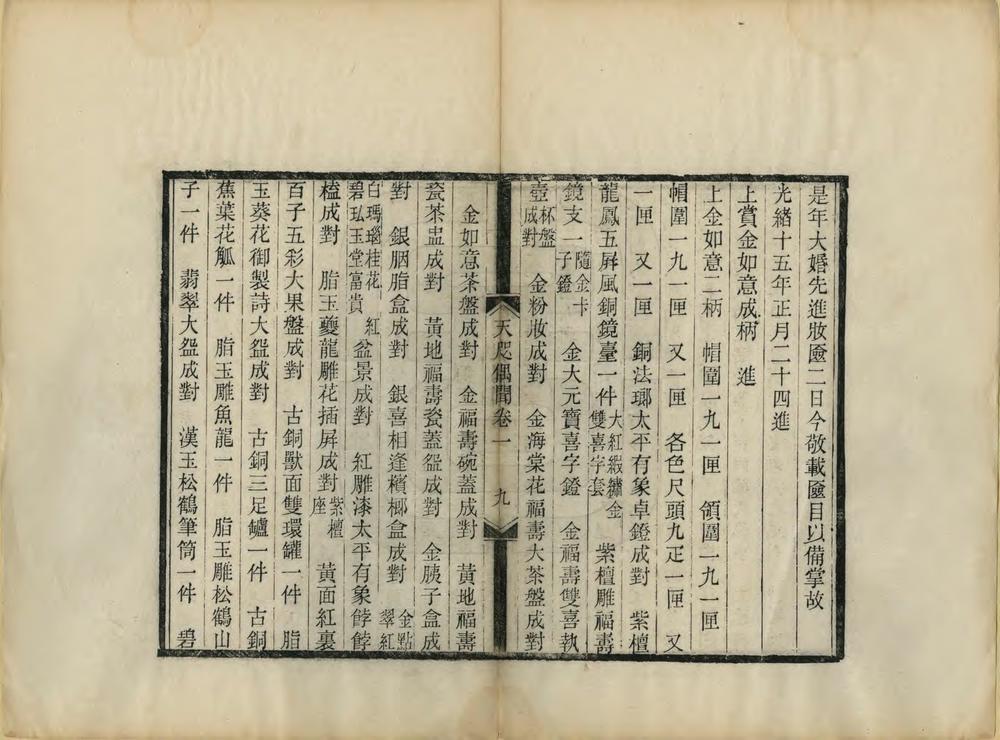 是年大婚先進妝匳二日今敬載匳目以備掌故
光緒十五年正月二十四進
上賞金如意成柄　進
上金如意二柄　帽圍一九一匣　領圍一九一匣
帽圍一九一匣　又一匣　各色尺頭九疋一匣　又
一匣　又一匣　銅法瑯太平有象卓鐙成對　紫檀
龍鳳五屏風銅鏡臺一件大紅緞繡金雙喜字套　紫檀雕福壽
鏡支一隨金卡子鐙　金大元寶喜字鐙　金福壽雙喜執
壺杯盤成對　金粉妝成對　金海棠花福壽大茶盤成對
天咫偶聞卷一　九
金如意茶盤成對　金福壽碗蓋成對　黃地福壽
瓷茶盅成對　黃地福壽瓷蓋盌成對　金胰子盒成
對　銀胭脂盒成對　銀喜相逢檳榔盒成對　金點翠紅
白瑪瑙桂花碧玨玉堂富貴　紅盆景成對　紅雕漆太平有象餑餑
榼成對　脂玉夔龍雕花插屏成對紫檀座　黃面紅裏
百子五彩大果盤成對　古銅獸面雙環罐一件　脂
玉葵花御製詩大盌成對　古銅三足罏一件　古銅
蕉葉花觚一件　脂玉雕魚龍一件　脂玉雕松鶴山
子一件　翡翠大盌成對　漢玉松鶴筆筒一件　碧